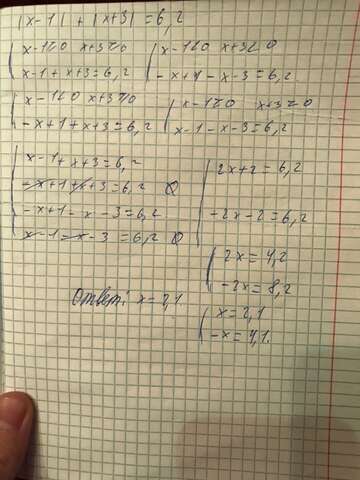 |x-1| + |x+3| = 6,2
x-1≥0 x+3≥0
x-1+x+3=6,2
x-1<0 x+3<0
-x+1-x-3=6,2
x-1<0 x+3≥0
-x+1+x+3=6,2
x-1≥0 x+3<0
x-1-x-3=6,2
x-1+x+3=6,2
-x+1+x+3=6,2 ∅
-x+1-x-3=6,2
x-1-x-3=6,2 ∅
2x+2=6,2
-2x-2=6,2
2x=4,2
-2x=8,2
Ответ: x=2,1
x=2,1
-x=4,1.